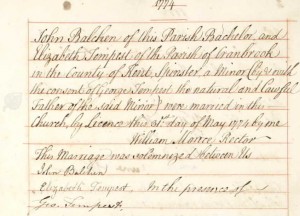 1774
John Balchen of this Parish Bachelor and
Elizabeth Tempest of the Parish of Cranbrook
in the County of Kent, Spinster, a Minor (by & with
the consent of George Tempest the natural and lawful
Father of the said Minor) were married in this
Church, by Licence this 31st day of May 1774 by me
William Marce, Rector
This Marriage was solemnized between Us
John Balchen
Elizabeth Tempest In the presence of
Geo. Tempest.